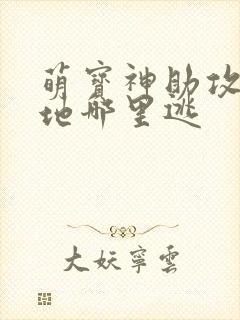 萌寶神助攻
地哪里逃
大妖寧雲